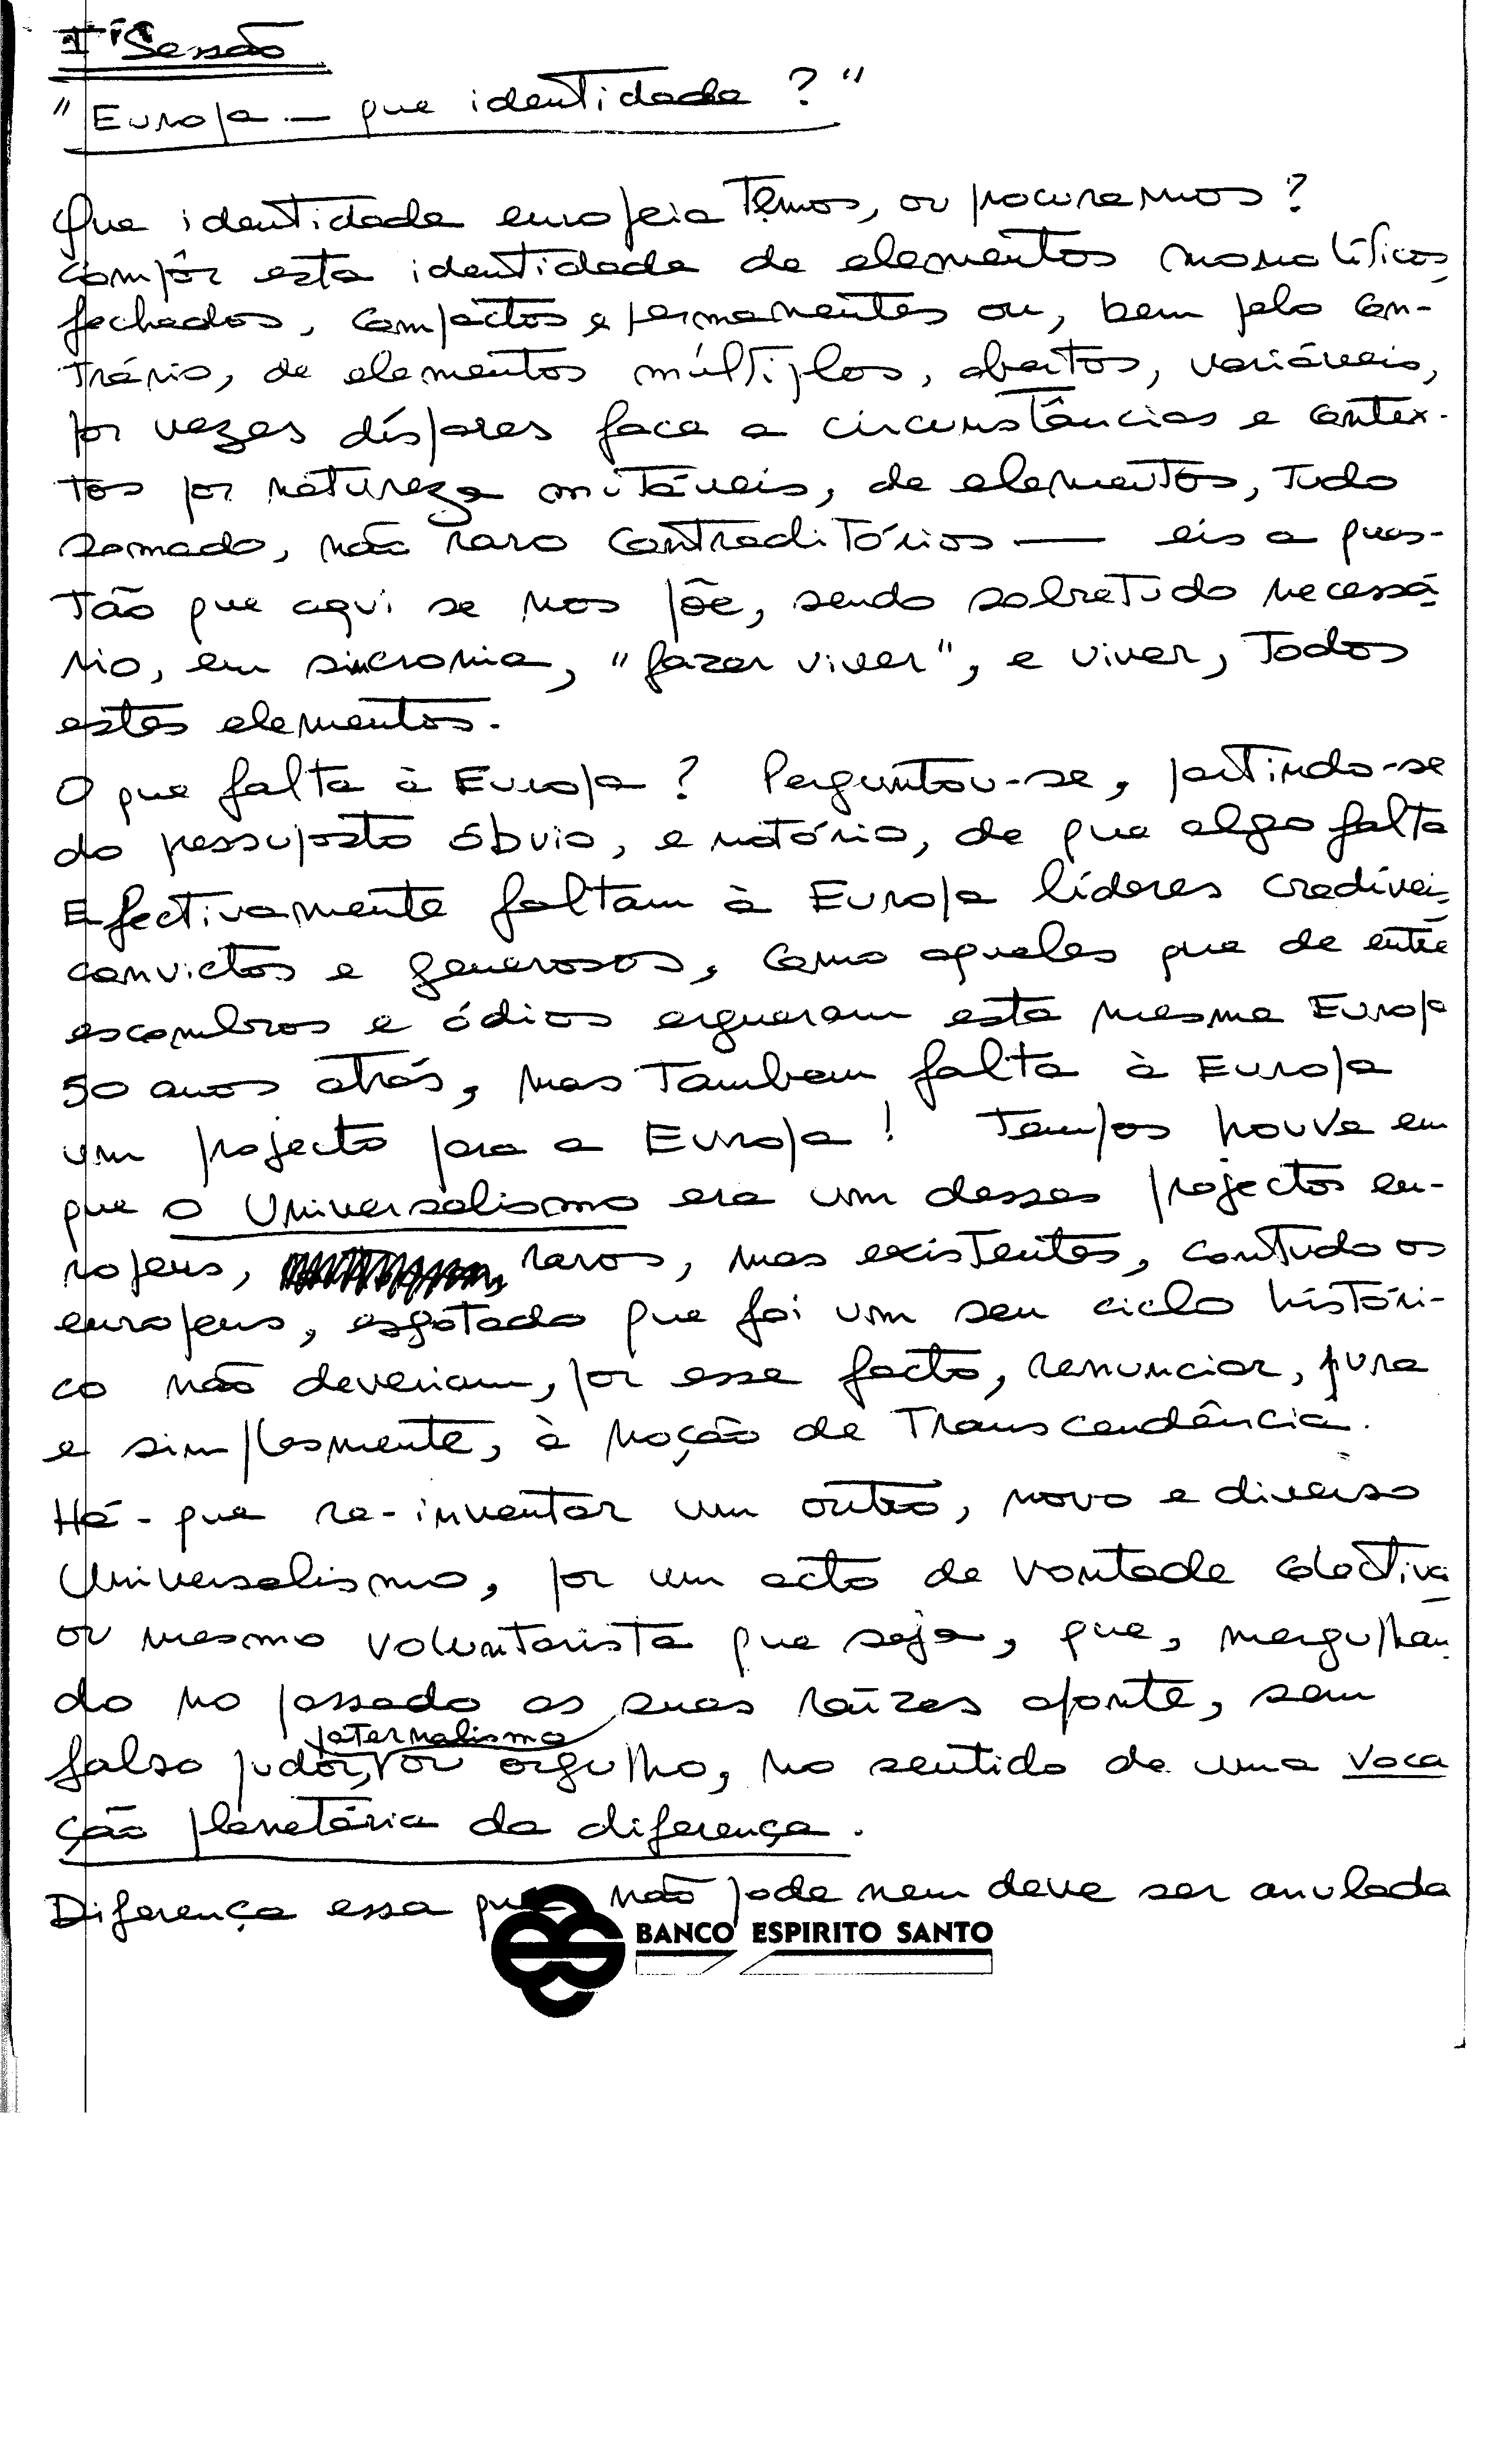 Iª Sessão
"Europa — que identidade?"
Que identidade europeia temos, ou procuramos?
Compôr esta identidade de elementos monolíticos
fechados, compactos e permanentes ou, bem pelo con-
trário, de elementos múltiplos, abertos, variáveis,
por vezes díspares face a circunstâncias e contex-
tos por natureza mutáveis, de elementos, tudo
somado, não raro contraditórios — eis a ques-
tão que aqui se nos põe, sendo sobretudo necessá
rio, em sincronia, "fazer viver", e viver, todos
estes elementos.
O que falta à Europa? Perguntou-se, partindo-se
do pressuposto óbvio, e notório, de que algo falta
Efectivamente faltam à Europa líderes credíveis,
convictos e generosos, como aqueles que de entre
escombros e ódios ergueram esta mesma Europa
50 anos atrás, mas tambem falta à Europa
um projecto para a Europa! Tempos houve em
que o Universalismo era um desses projectos eu-
ropeus, raros, mas existentes, contudo os
europeus, esgotado que foi um seu ciclo históri-
co não deveriam, por esse facto, renunciar, pura
e simplesmente, à noção de Transcendência.
Há-que re-inventar um outro, novo e diverso
Universalismo, por um acto de vontade colectiva
ou mesmo voluntarista que seja, que, mergulhan
do no passado as suas raízes aponte, sem
falso pudor, paternalismo ou orgulho, no sentido de uma voca
ção planetária da diferença.
Diferença essa que não pode nem deve ser anulada
BANCO ESPIRITO SANTO